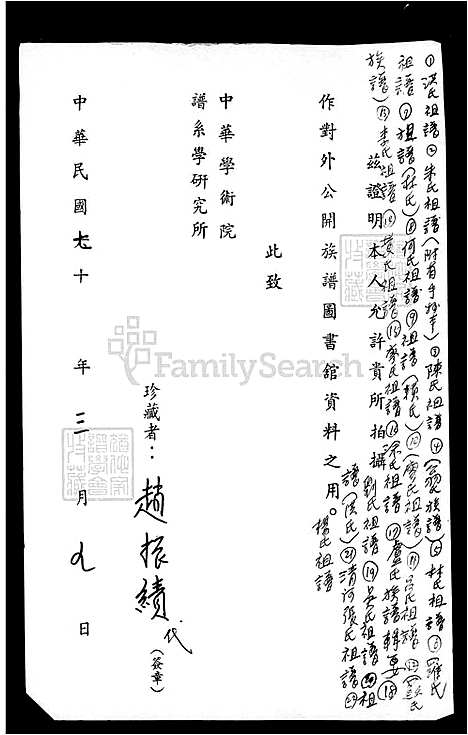 ①洪氏祖譜②朱氏祖譜(附有手抄本)③陳氏祖譜④(翁氏族譜)⑤林氏祖譜⑥羅氏
祖譜⑦祖譜(林氏)⑧何氏祖譜⑨祖譜(賴氏)⑩(廖氏祖譜)⑪吳氏祖譜
族譜)⑬李氏祖譜⑭黃氏祖譜⑮廖氏祖譜⑯宗氏祖譜⑰盧氏族譜輯要⑱
劉氏祖譜⑲吳氏祖譜⑳祖
譜(洪氏)㉑清河張氏祖譜
楊氏祖譜
茲證明本人允許貴所拍攝
作對外公開族譜圖書館資料之用。
此致
中華學術院
譜系學研究所
珍藏者:趙振績代(簽章)
中華民國七十年三月九日
FamilySearch